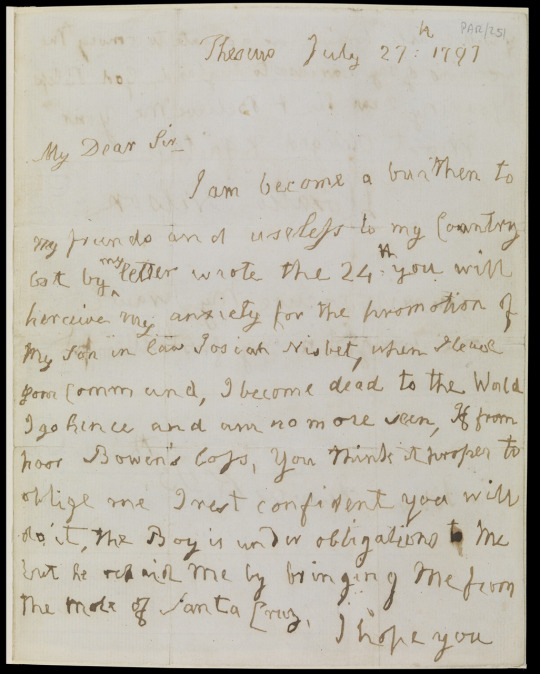 PAR/251
Theseus July 27: th 1797
My Dear Sir
I am become a burthen to
my friends and useless to my Country
but by my letter wrote the 24: th you will
perceive my anxiety for the promotion of
My Son in law Josiah Nisbet, when I leave
your Command, I become dead to the World
I go hence and am no more seen, If from
poor Bowen's loss, You think it proper to
oblige me I rest confident you will
do it, the Boy is under obligations to Me
but he repaid Me by bringing Me from
the Mole of Santa Cruz,
I hope you